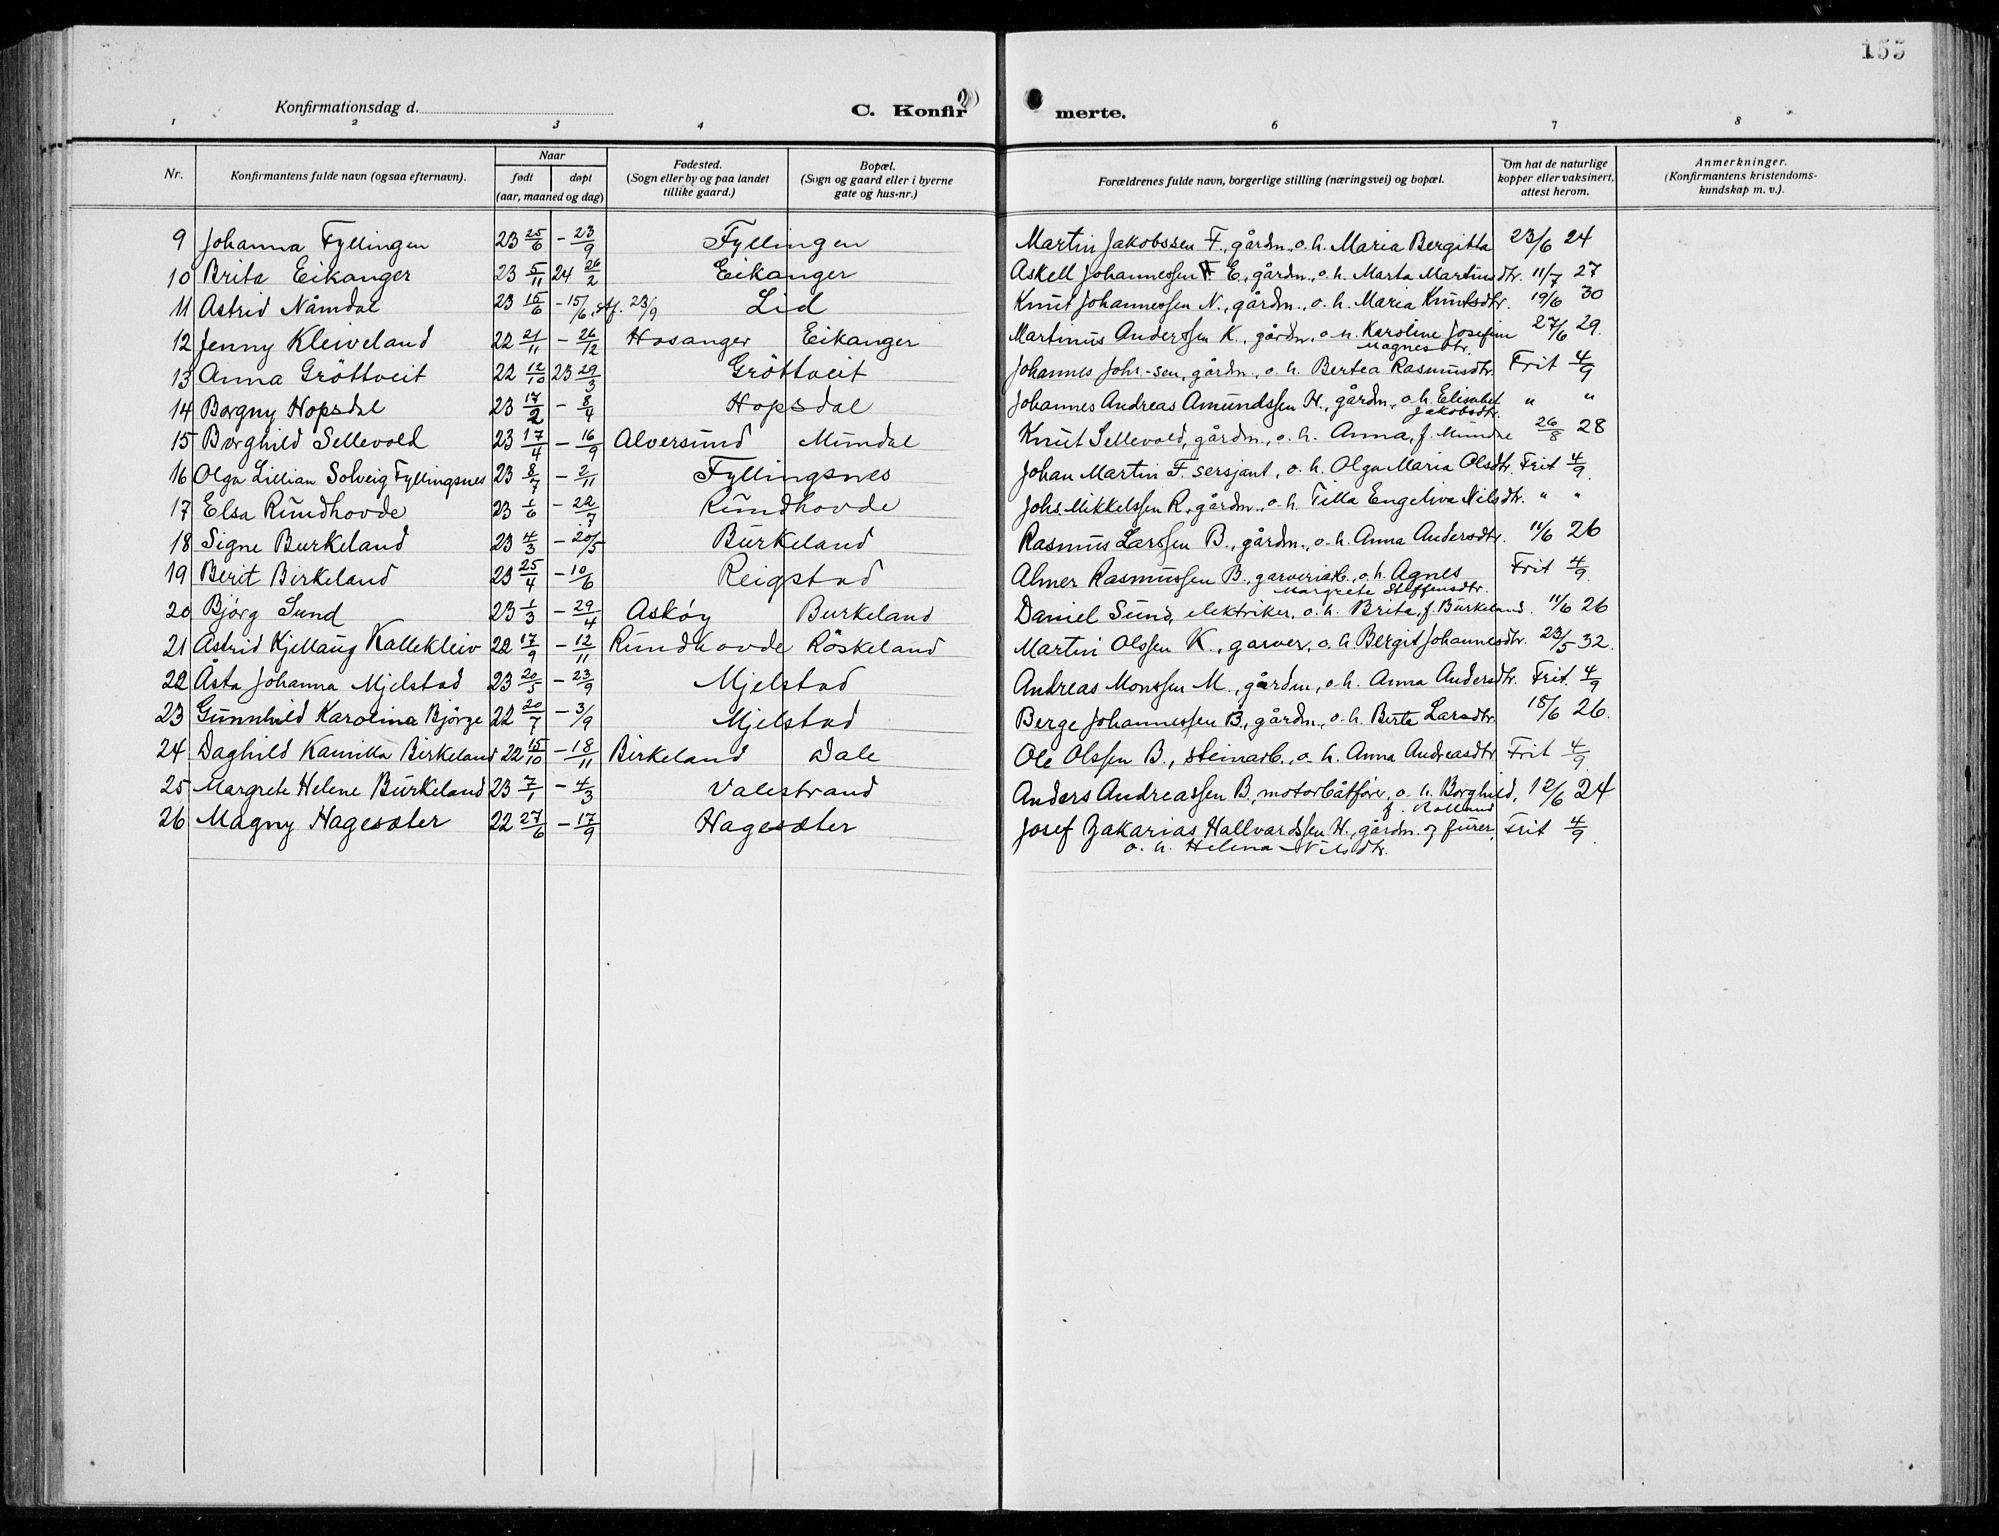 155
Konfirmationsdag d.
C. Konfir merte.
1 2 3 4 6 7 8
Nr. Konfirmantens fulde navn (ogsaa efternavn). Naar født døpt (aar, maaned og dag) Fødested. (Sogn eller by og paa landet tillike gaard.) Bopæl. (Sogn og gaard eller i byerne gate og hus-nr.) Forældrenes fulde navn, borgerlige stilling (næringsvei) og bopæl. Om hat de naturlige kopper eller vaksinert, attest herom. Anmerkninger. (Konfirmantens kristendoms-kundskap m. v.).
9 Johanna Fyllingen 23 25/6 - 23/9 Fyllingen Martin Jakobssen F., gårdm., o. h. Maria Bergitta 23/6 24
10 Brita Eikanger 23 5/11 24 26/2 Eikanger Askell Johannessen E., gårdm., o. h. Marta Martinsdtr. 11/7 27
11 Astrid Nåmdal 23 15/6 - 15/6, stf. 23/9 Lid Knut Johannessen N., gårdm., o. h. Maria Knutsdtr. 19/6 30
12 Jenny Kleiveland 22 21/11 - 26/12 Hosanger Eikanger Martinus Anderssen K., gårdm., o. h. Karoline Josefine Magnesdtr. 27/6 29.
13 Anna Gröttveit 22 12/10 23 29/3 Gröttveit Johannes Johs.-sen, gårdm., o. h. Bertea Rasmusdtr. Frit 4/9
14 Borgny Hopsdal 23 17/2 - 8/4 Hopsdal Johannes Andreas Amundssen H., gårdm., o. h. Elisabet Jakobsdtr. " "
15 Borghild Sellevold 23 17/4 - 16/9 Alversund Mundal Knut Sellevold, gårdm., o. h. Anna, f. Mundal 26/8 28
16 Olga Lillian Solveig Fyllingsnes 23 8/7 - 2/11 Fyllingsnes Johan Martin F. sersjant, o. h. Olga Maria Olsdtr. Frit 4/9.
17 Elsa Rundhovde 23 1/6 - 22/7 Rundhovde Johs. Mikkelssen R., gårdm., o. h. Tilla Engelina Nilsdtr. " "
18 Signe Burkeland 23 4/3 - 20/5 Burkeland Rasmus Larssen B., gårdm., o. h. Anna Andersdtr. 11/6 26
19 Berit Birkeland 23 25/4 - 10/6 Reigstad Almer Rasmussen B., garveriarb., o. h. Agnes Margrete Steffensdtr. Frit 4/9.
20 Bjørg Sund 23 1/3 - 29/4 Askøy Burkeland Daniel Sund, elektriker, o. h. Brita, f. Burkeland. 11/6 26
21 Astrid Kjellaug Kallekleiv 22 17/9 - 12/11 Rundhovde Röskeland Martin Olssen K., garver, o. h. Bergit Johannesdtr. 23/5 32.
22 Åsta Johanna Mjelstad 23 20/5 - 23/9 Mjelstad Andreas Monssen M., gårdm., o. h. Anna Andersdtr. Frit. 4/9
23 Gunnhild Karolina Bjørge 22 20/7 - 3/9 Mjelstad Berge Johannessen B., gårdm., o. h. Berta Larsdtr. 18/6 26.
24 Daghild Kamilla Birkeland 22 15/10 - 18/11 Birkeland Dale Ole Olssen B., steinarb., o. h. Anna Andreasdtr. Frit 4/9
25 Margrete Helene Burkeland 23 7/1 - 4/3 Valestrand Anders Andreassen B., motorbåtfører, o. h. Borghild, f. Rolland 12/6 24
26 Magny Hagesæter 22 27/6 - 17/9 Hagesæter Josef Zakarias Hallvardssen H., gårdm. og furer, o. h. Helena Nilsdtr. Frit 4/9.